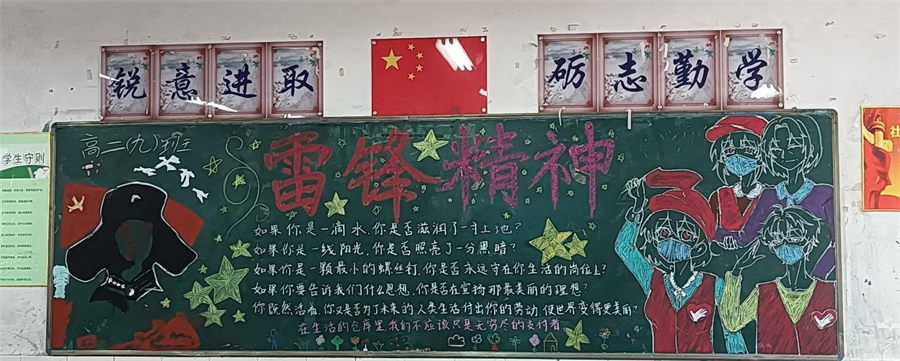 锐意进取
砺志勤学
学生守则
高二(九)班
雷锋精神
如果你是一滴水,你是否滋润了一寸土地?
如果你是一线阳光,你是否照亮了一分黑暗?
如果你是一颗最小的螺丝钉,你是否永远守在你生活的岗位上?
如果你要告诉我们什么思想,你是否在宣扬那最美丽的理想?
你既然活着,你又是否为了未来的人类生活付出你的劳动,使世界变得更美丽?
在生活的仓库里,我们不应该只是无穷尽的支付者
社